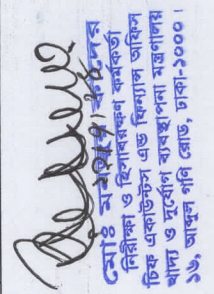 মোঃ
নিরীক্ষা ও হিসাবরক্ষণ কর্মকর্তা
চিফ একাউন্টস এন্ড ফিন্যান্স অফিস
খাদ্য ও দুর্যোগ ব্যবস্থাপনা মন্ত্রণালয়
১৬, আব্দুল গনি রোড, ঢাকা-১০০০।